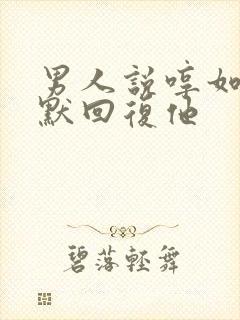 男人説哼如
默回復他
碧落輕舞